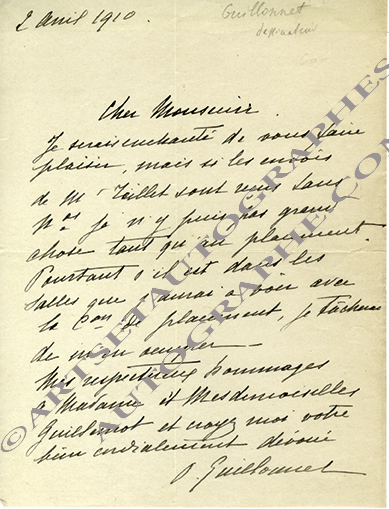 2 avril 1910.
Guillonnet
dessinateur
Cher Monsieur
Je serais enchanté de vous faire
plaisir, mais si les envois
de Mr sont reçus sans
Nos je n'y puis pas grand
chose tant qu'au placement.
Pourtant s'il est dans les
salles que j'aurai à voir avec
la Con de placement, je tâcherai
de m'en occuper –
Mes respectueux hommages
à Madame et Mesdemoiselles
Guillemot et croyez moi votre
bien cordialement dévoué
O. Guillonnet
© ARTSETAUTOGRAPHES
AUTOGRAPHE.COM